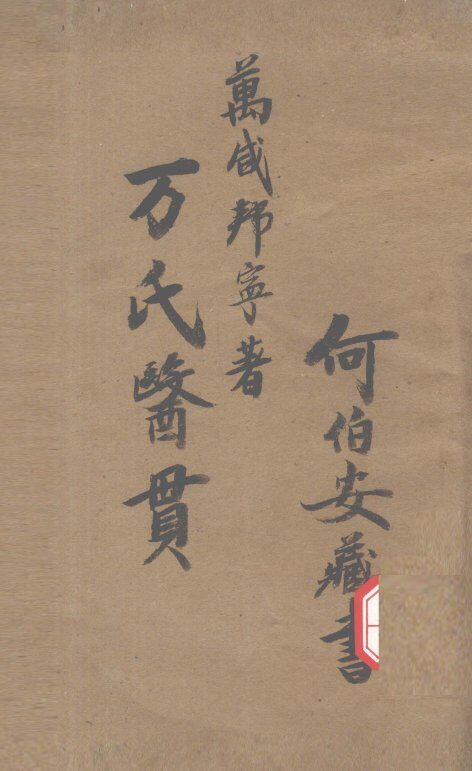 何伯安藏書
萬咸邦寧著
万氏醫貫